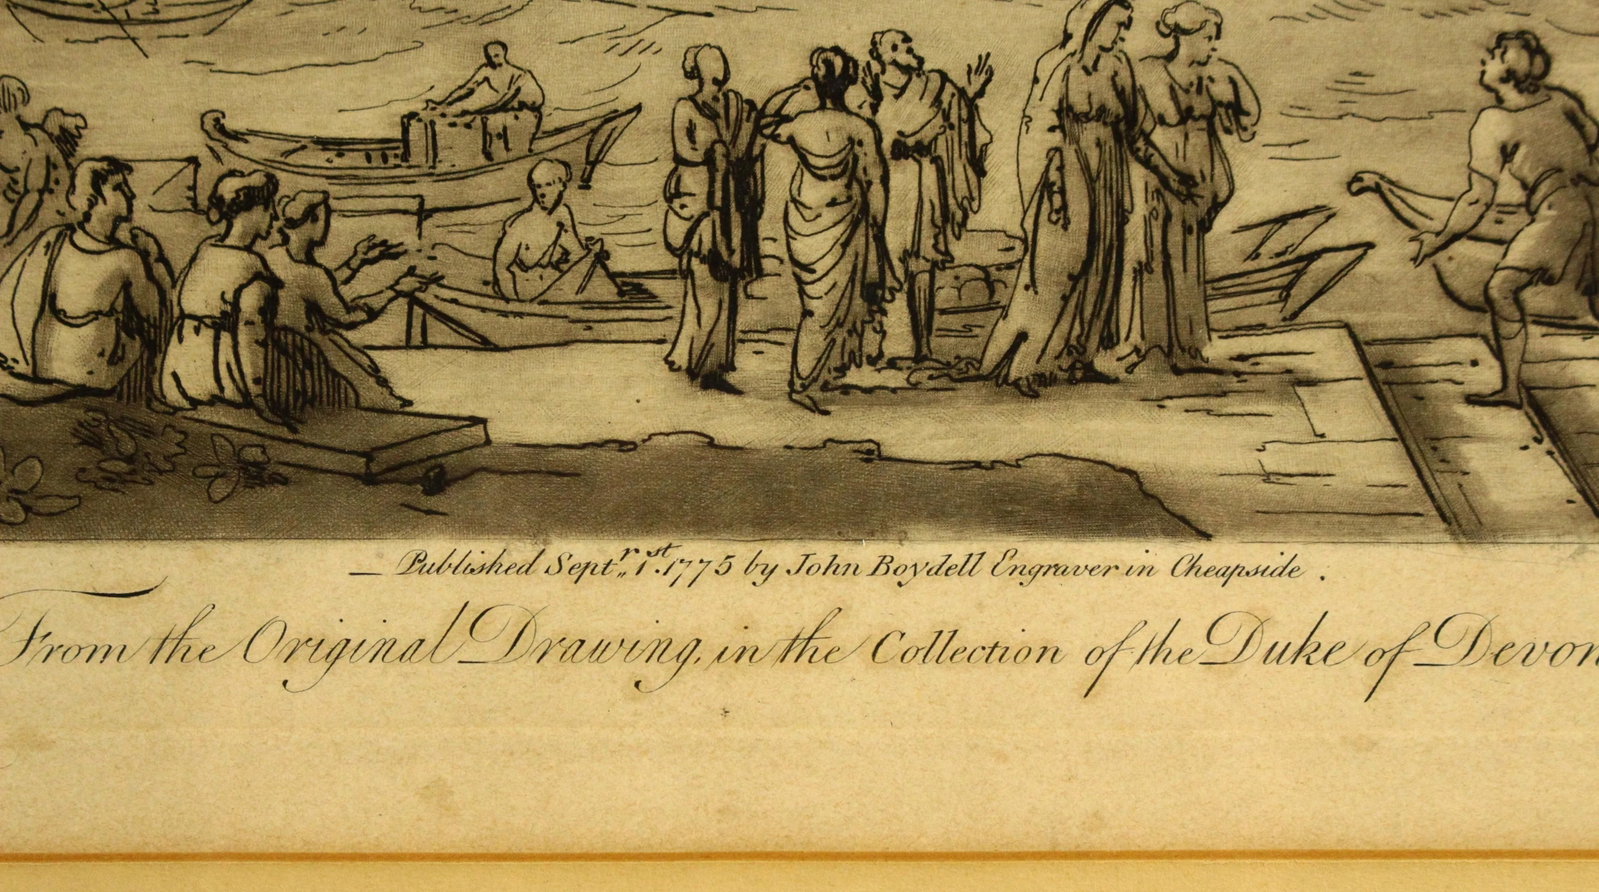 Published Septr. 1st. 1775 by John Boydell Engraver in Cheapside.
From the Original Drawing, in the Collection of the Duke of Devon